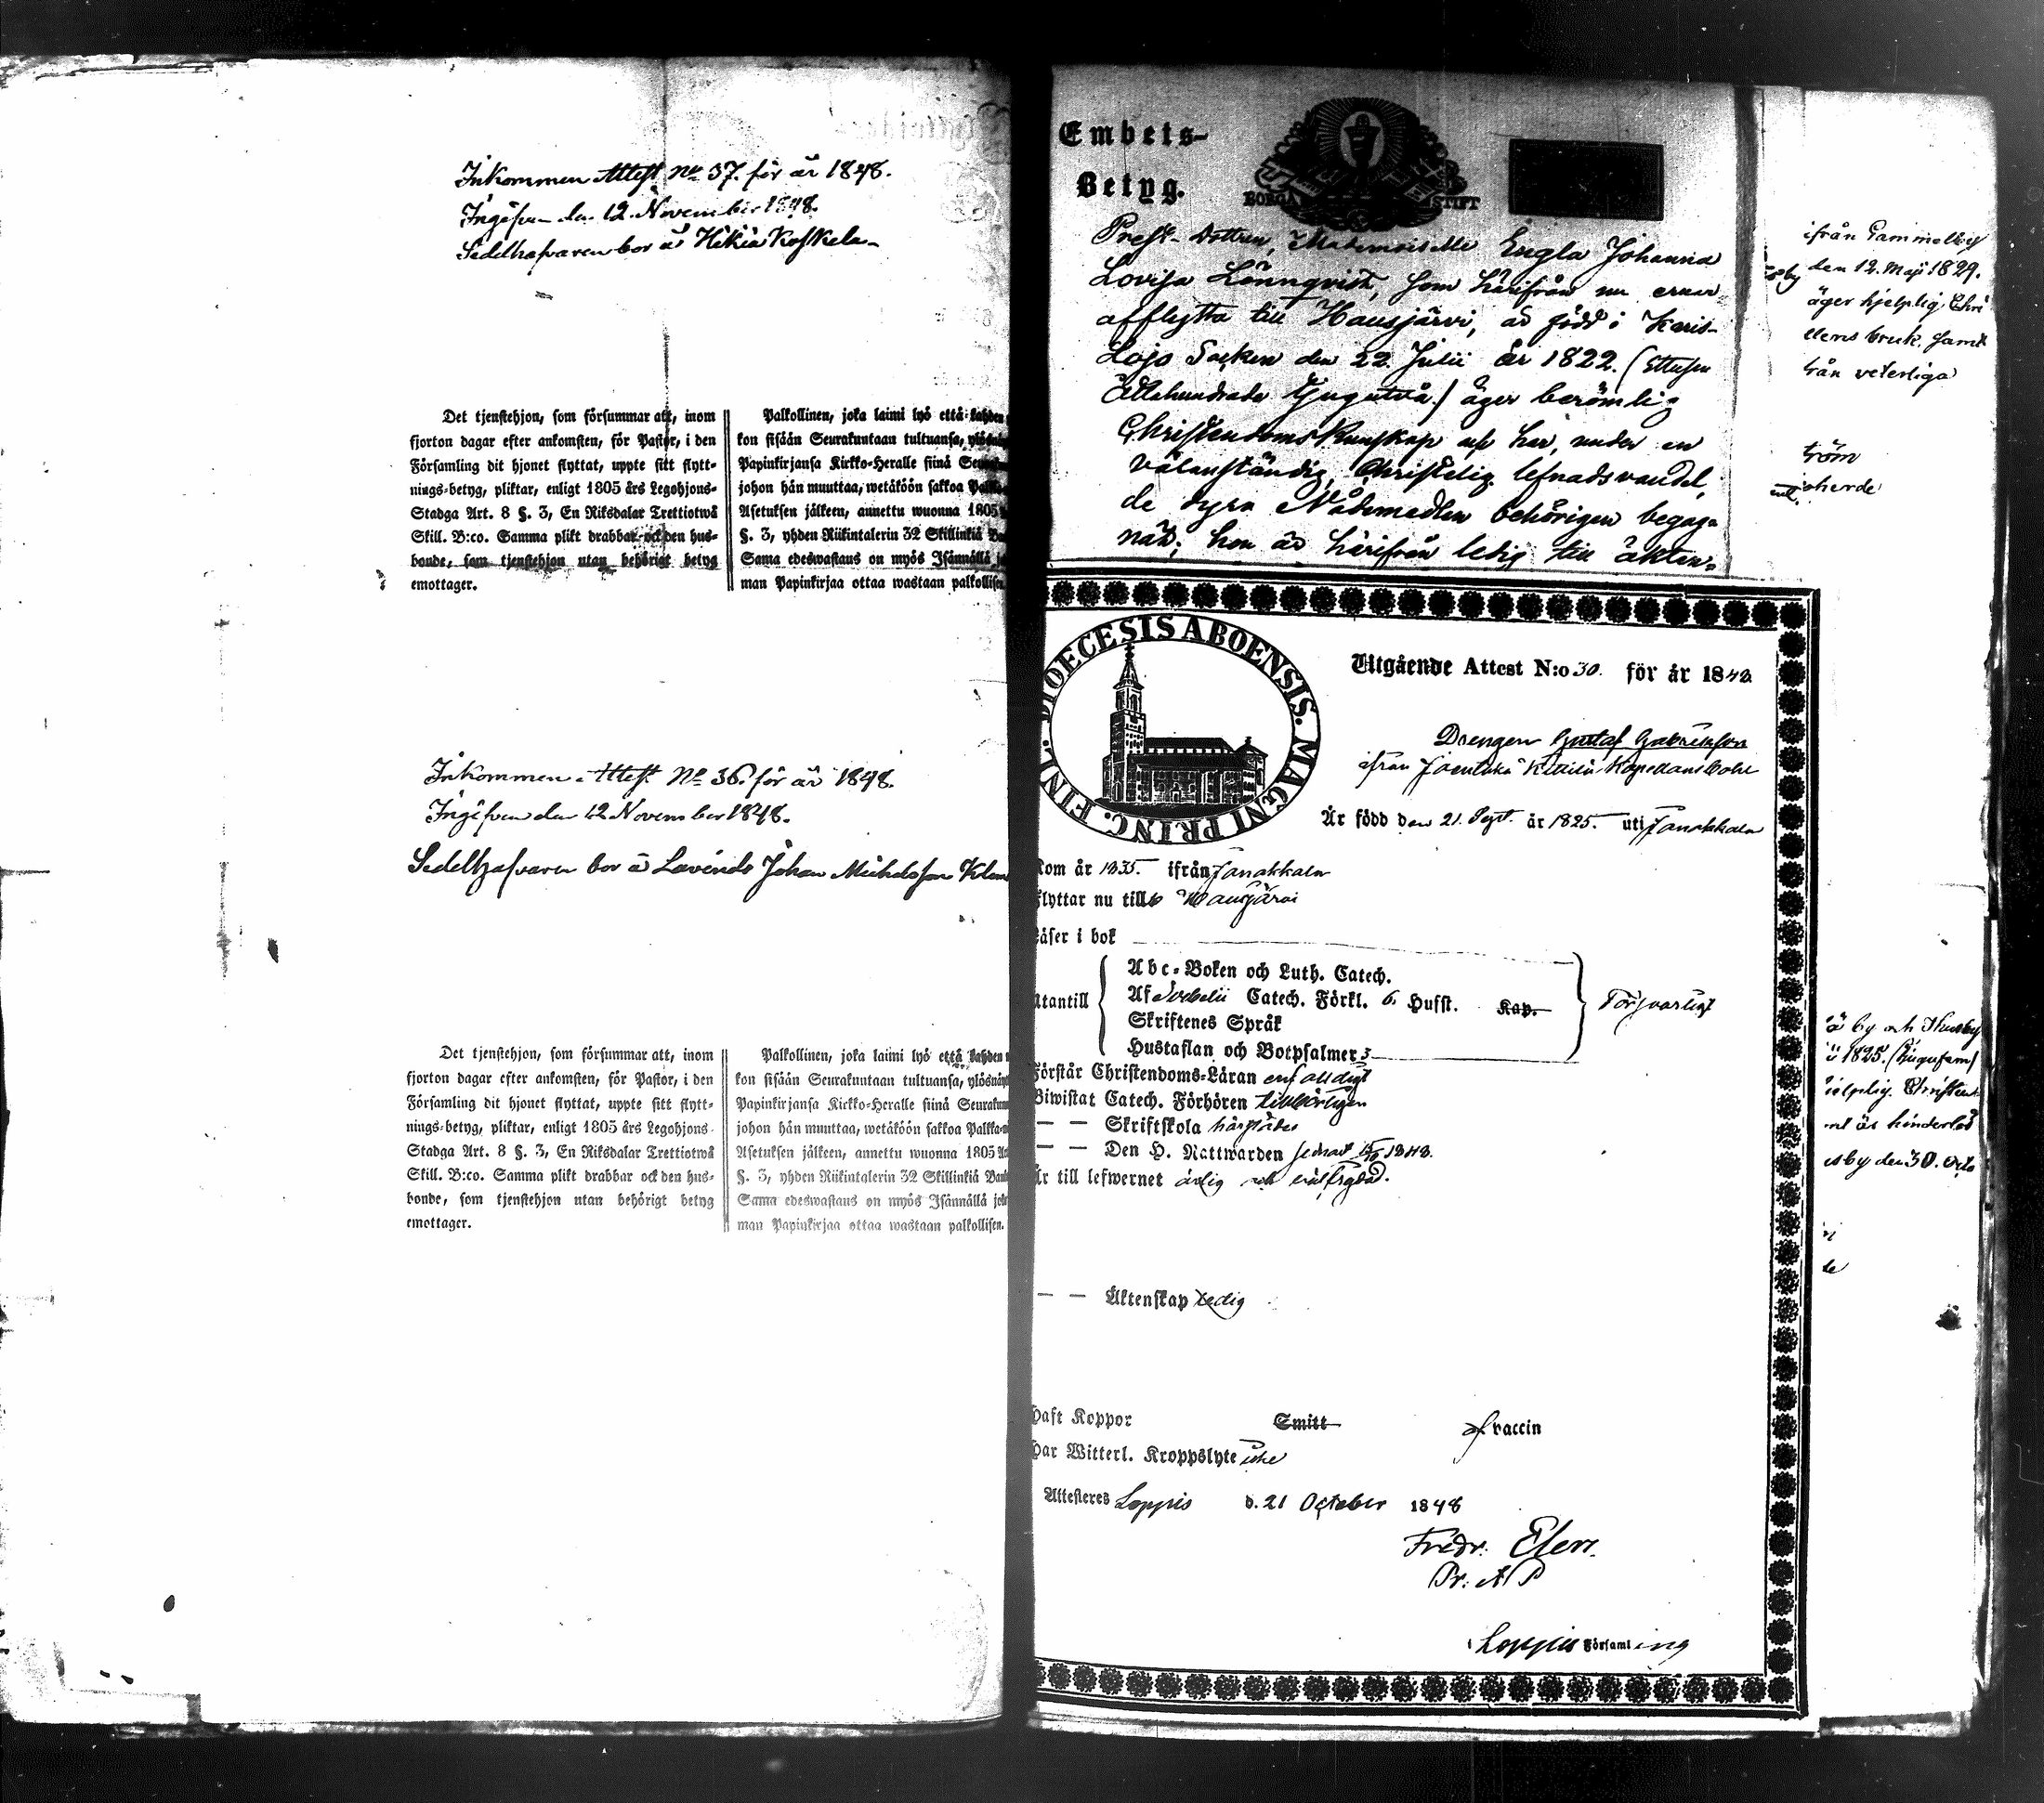 Inkommen Attest No 37. för år 1848.
Ingifven den 12 November 1848.
Sedelhafvaren bor å Hikiä Koskela
Det tjenstehjon, som försummar att, inom
fjorton dagar efter ankomsten, för Pastor, i den
Församling dit hjonet flyttat, uppte sitt flytt-
nings-betyg, pliktar, enligt 1805 års Legohjons-
Stadga Art. 8 §. 3, En Riksdalar Trettiotwå
Skill. B:co. Samma plikt drabbar ock den hus-
bonde, som tjenstehjon utan behörigt betyg
emottager.
Palkollinen, joka laimi lyö että kahden
kon sisään Seurakuntaan tultuansa, ylösnäy
Papinkirjansa Kirkko-Heralle siinä Seu
johon hän muuttaa, wetäköön sakkoa Palk
Asetuksen jälkeen, annettu wuonna 1805
§. 3, yhden Riikintalerin 32 Skillinkiä Ba
Sama edeswastaus on myös Isännällä jo
man Papinkirjaa ottaa wastaan palkollisen.
Inkommen Attest No 36. för år 1848.
Ingifven den 12 November 1848.
Sedelhafvaren bor å Lavinds Johan Michelsson Klem
Det tjenstehjon, som försummar att, inom
fjorton dagar efter ankomsten, för Pastor, i den
Församling dit hjonet flyttat, uppte sitt flytt-
nings-betyg, pliktar, enligt 1805 års Legohjons-
Stadga Art. 8 §. 3, En Riksdalar Trettiotwå
Skill. B:co. Samma plikt drabbar ock den hus-
bonde, som tjenstehjon utan behörigt betyg
emottager.
Palkollinen, joka laimi lyö että kahden
kon sisään Seurakuntaan tultuansa, ylösnäyt
Papinkirjansa Kirkko-Heralle siinä Seurakun
johon hän muuttaa, wetäköön sakkoa Palkka
Asetuksen jälkeen, annettu wuonna 1805 Ar
§. 3, yhden Riikintalerin 32 Skillinkiä Ban
Sama edeswastaus on myös Isännällä jok
man Papinkirjaa ottaa wastaan palkollisen.
Embets-
Betyg.
BORGÅ STIFT
Prest-Dottren, Mademoiselle Engla Johanna
Lovisa Lönnqvist, som härifrån nu ernar
afflytta till Hausjärvi, är född i Karis-
Lojo Socken den 22 Julii år 1822. (Ettusen
Åttahundrade Tjugutvå.) äger berömlig
Christendoms Kunskap och har, under en
välanständig, Christelig lefnadsvandel,
de dyra Nådemedlen behörigen begag-
nat; hon är härifrån ledig till äkten-
DIOECESIS ABOENSIS. MAGNI PRINC. FINL.
Utgående Attest N:o 30. för år 1848
Drengen Gustaf Gabrielsson
ifrån Joentaka Kittilä Kapellans bohl
Är född den 21. Sept. år 1825. uti Janakkala
Kom år 1835. ifrån Janakkala
flyttar nu till Hausjärvi
Läser i bok
Utantill
Abc-Boken och Luth. Catech.
Af Svebelii Catech. Förkl. 6. Hufst. Kap.
Skriftenes Språk
Hustaflan och Botpsalmer 3
Försvarligt
Förstår Christendoms-Läran enfaldigt
Biwistat Catech. Förhören tillbörligen
— — Skriftskola härstädes
— — Den H. Nattwarden senast 1848.
Är till lefwernet ärlig och välfrejdad.
— — Äktenskap Ledig
Haft Koppor Smitt af vaccin
Har Witterl. Kroppslyte icke
Attesteres Loppis d. 21 October 1848
Fredr. Elers.
Pr: A P
i Loppis Församling
ifrån Gammelby
den 12. Maji 1829.
äger hjelplig Chri
dens bruk, samt
från veterliga
ström
oherde
å by och Husby
1825. (tjugufem)
hjelplig Christen
är hinderlös
by den 30. Octo